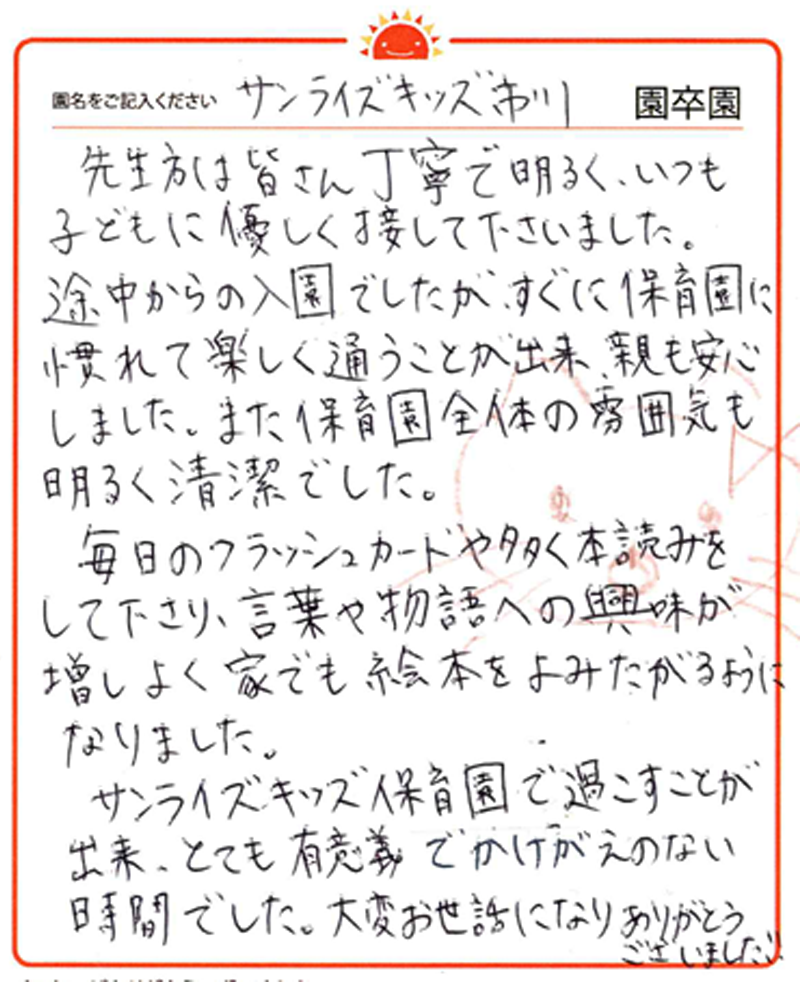 園名をご記入ください サンライズキッズ市川 園卒園
先生方は皆さん丁寧で明るく、いつも
子どもに優しく接して下さいました。
途中からの入園でしたが、すぐに保育園に
慣れて楽しく通うことが出来、親も安心
しました。また保育園全体の雰囲気も
明るく清潔でした。
毎日のフラッシュカードや多く本読みを
して下さり、言葉や物語への興味が
増しよく家でも絵本をよみたがるように
なりました。
サンライズキッズ保育園で過こすことが
出来、とても有意義でかけがえのない
時間でした。大変お世話になりありがとう
ございました!!